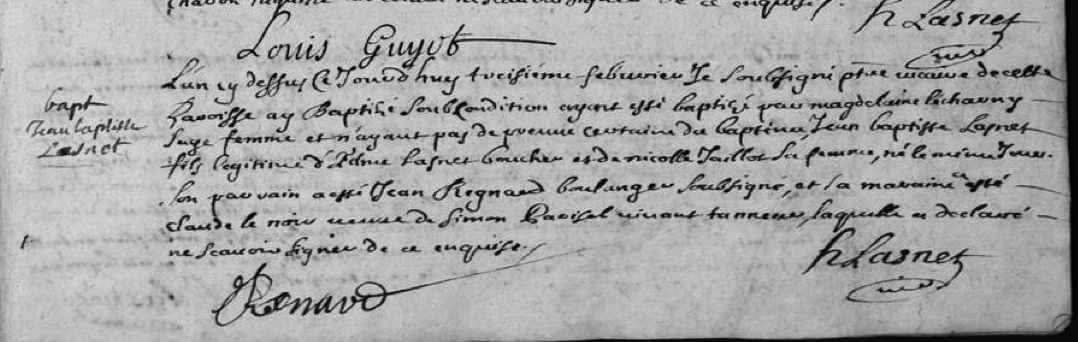 h Lasnet
Louis Guyot
L'an cy dessus Ce Jourd huy treisiéme febuvrier Je Soubsigné ptre vicaire de cette
Paroisse ay Baptisé soubs condition ayant esté baptisé par magdelaine
sage femme et n'ayant pas de preuve certaine du baptême, Jean baptiste Lasnet
fils legitime d'Edme Lasnet boucher et de nicolle Jaillot sa femme, né le même Jour.
Son parrain a esté Jean Regnard boulanger soubsigné, et sa maraine a esté
claude le noir veuve de Simon vivant tanneur, laquelle a declaré
ne scavoir signer de ce enquise.
bapt
Jean baptiste
Lasnet
h Lasnet
Renard